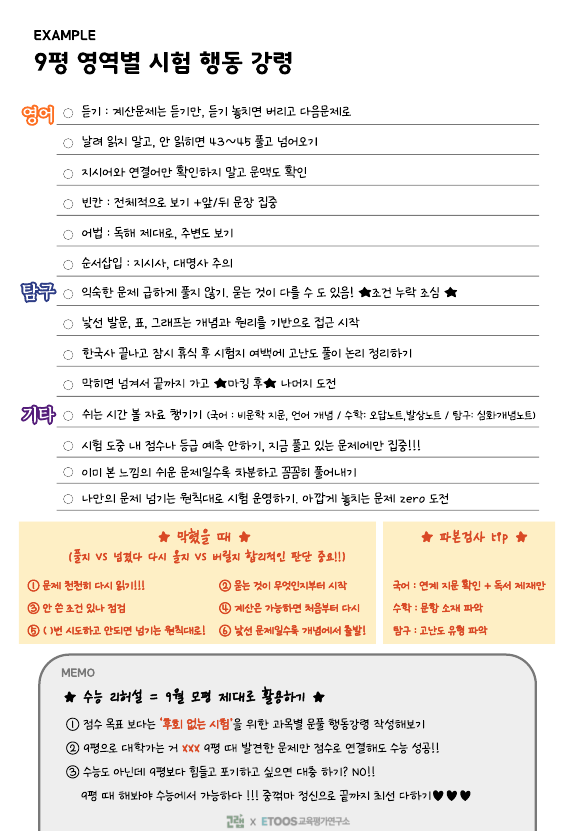 EXAMPLE
9평 영역별 시험 행동 강령
영어
듣기 : 계산문제는 듣기만, 듣기 놓치면 버리고 다음문제로
날려 읽지 말고, 안 읽히면 43~45 풀고 넘어오기
지시어와 연결어만 확인하지 말고 문맥도 확인
빈칸 : 전체적으로 보기 +앞/뒤 문장 집중
어법 : 독해 제대로, 주변도 보기
순서삽입 : 지시사, 대명사 주의
탐구
익숙한 문제 급하게 풀지 않기. 묻는 것이 다를 수 도 있음! ★조건 누락 조심 ★
낯선 발문, 표, 그래프는 개념과 원리를 기반으로 접근 시작
한국사 끝나고 잠시 휴식 후 시험지 여백에 고난도 풀이 논리 정리하기
막히면 넘겨서 끝까지 가고 ★마킹 후★ 나머지 도전
기타
쉬는 시간 볼 자료 챙기기 (국어 : 비문학 지문, 언어 개념 / 수학: 오답노트,발상노트 / 탐구: 심화개념노트)
시험 도중 내 점수나 등급 예측 안하기, 지금 풀고 있는 문제에만 집중!!!
이미 본 느낌의 쉬운 문제일수록 차분하고 꼼꼼히 풀어내기
나만의 문제 넘기는 원칙대로 시험 운영하기. 아깝게 놓치는 문제 zero 도전
★ 막혔을 때 ★
(풀지 VS 넘겼다 다시 올지 VS 버릴지 합리적인 판단 중요!!)
① 문제 천천히 다시 읽기!!! ② 묻는 것이 무엇인지부터 시작
③ 안 쓴 조건 있나 점검 ④ 계산은 가능하면 처음부터 다시
⑤ ( )번 시도하고 안되면 넘기는 원칙대로! ⑥ 낯선 문제일수록 개념에서 출발!
★ 파본검사 tip ★
국어 : 연계 지문 확인 + 독서 제재만
수학 : 문항 소재 파악
탐구 : 고난도 유형 파악
MEMO
★ 수능 리허설 = 9월 모평 제대로 활용하기 ★
① 점수 목표 보다는 '후회 없는 시험'을 위한 과목별 문풀 행동강령 작성해보기
② 9평으로 대학가는 거 xxx 9평 때 발견한 문제만 점수로 연결해도 수능 성공!!
③ 수능도 아닌데 9평보다 힘들고 포기하고 싶으면 대충 하기? NO!!
9평 때 해봐야 수능에서 가능하다 !!! 중꺾마 정신으로 끝까지 최선 다하기♥♥♥
그램 x ETOOS교육평가연구소